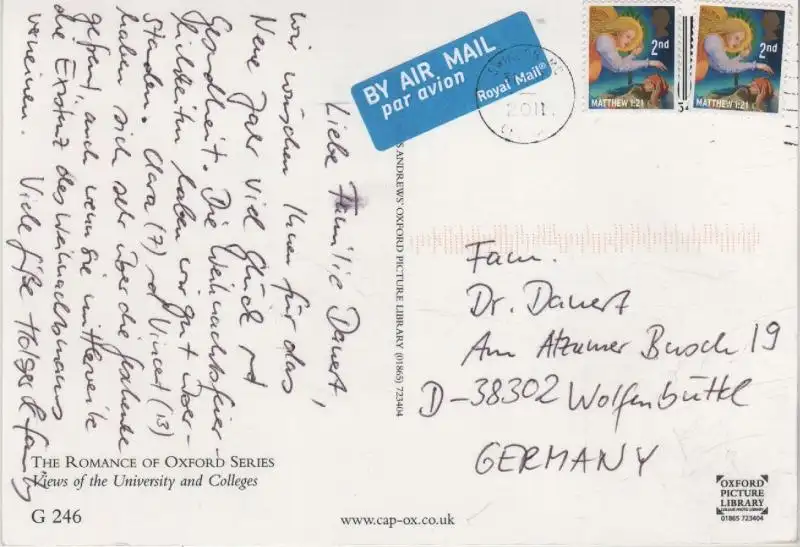 Liebe Familie Dauert,
wir wünschen Ihnen für das
Neue Jahr viel Glück und
Gesundheit. Die Weihnachtsfeier-
lichkeiten haben wir gut über-
standen. Clara (7) und Vincent (13)
haben sich sehr über die Geschenke
gefreut, auch wenn sie mittlerweile
die Existenz des Weihnachtsmanns
verneinen.
Viele Grüße Holger & family
THE ROMANCE OF OXFORD SERIES
Views of the University and Colleges
G 246
www.cap-ox.co.uk
S ANDREWS' OXFORD PICTURE LIBRARY (01865) 723404
BY AIR MAIL
par avion
Royal Mail®
2011
2nd
MATTHEW 1:21
2nd
MATTHEW 1:21
Fam.
Dr. Dauert
Am Atzumer Busch 19
D-38302 Wolfenbüttel
GERMANY
OXFORD
PICTURE
LIBRARY
01865 723404